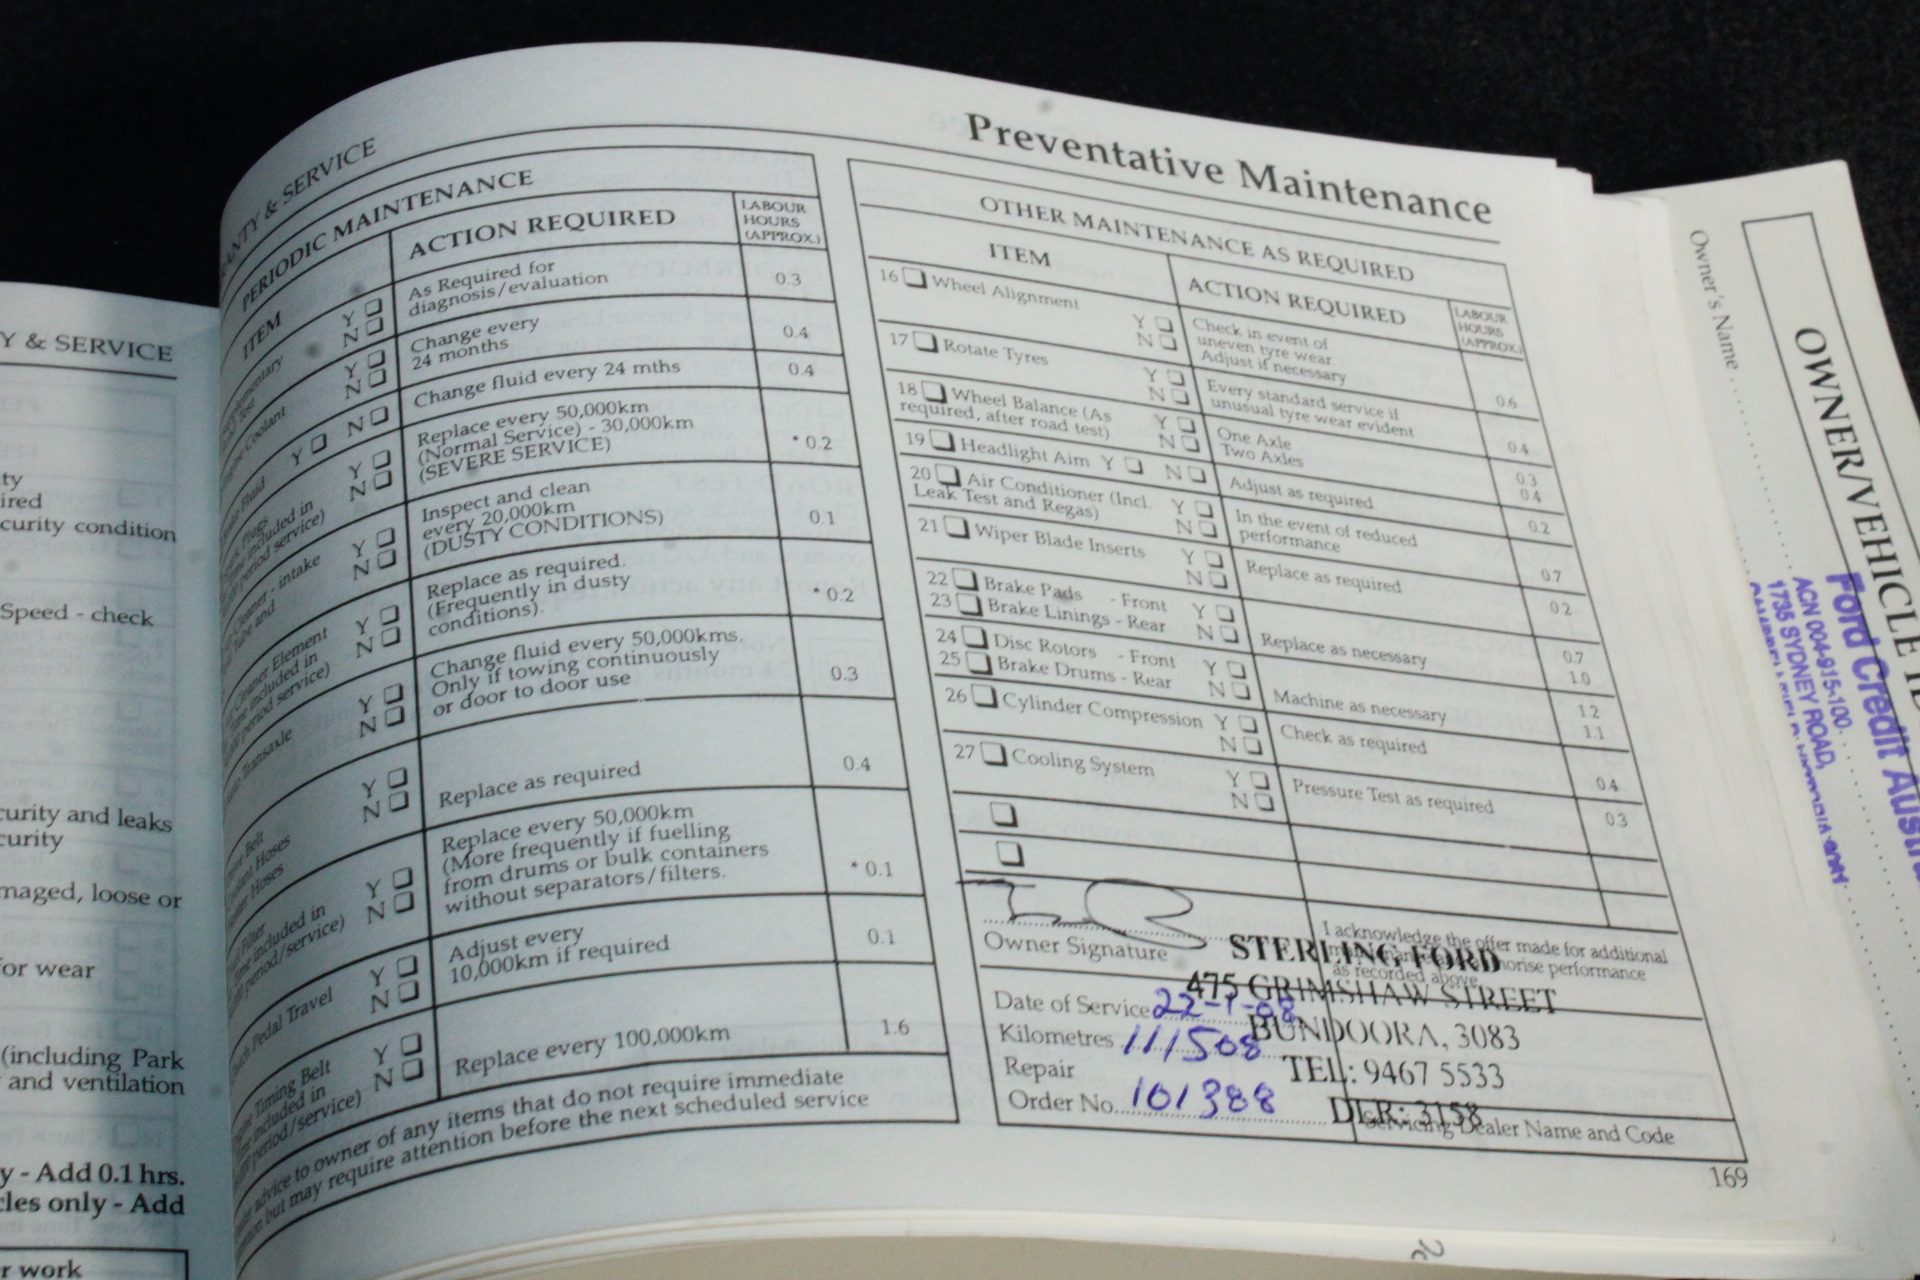 Y & SERVICE
ty
ired
curity condition
Speed - check
curity and leaks
curity
maged, loose or
for wear
(including Park
and ventilation
y - Add 0.1 hrs.
cles only - Add
r work
ANTY & SERVICE
Preventative Maintenance
PERIODIC MAINTENANCE
ITEM
ACTION REQUIRED
LABOUR
HOURS
(APPROX.)
Y
N
As Required for
diagnosis/evaluation
0.3
Coolant
Y
N
Change every
24 months
0.4
Fluid Y N
Change fluid every 24 mths
0.4
Plugs
included in
period service)
Y
N
Replace every 50,000km
(Normal Service) - 30,000km
(SEVERE SERVICE)
* 0.2
Cleaner - intake
Tube and
Y
N
Inspect and clean
every 20,000km
(DUSTY CONDITIONS)
0.1
Cleaner Element
included in
period service)
Y
N
Replace as required.
(Frequently in dusty
conditions).
* 0.2
Transaxle
Y
N
Change fluid every 50,000kms.
Only if towing continuously
or door to door use
0.3
Belt
Hoses
Hoses
Y
N
Replace as required
0.4
Filter
included in
period/service)
Y
N
Replace every 50,000km
(More frequently if fuelling
from drums or bulk containers
without separators/filters.
* 0.1
Pedal Travel
Y
N
Adjust every
10,000km if required
0.1
Timing Belt
included in
period/service)
Y
N
Replace every 100,000km
1.6
advice to owner of any items that do not require immediate
but may require attention before the next scheduled service
OTHER MAINTENANCE AS REQUIRED
ITEM
ACTION REQUIRED
LABOUR
HOURS
(APPROX.)
16 Wheel Alignment
Y
N
Check in event of
uneven tyre wear.
Adjust if necessary
0.6
17 Rotate Tyres
Y
N
Every standard service if
unusual tyre wear evident
0.4
18 Wheel Balance (As
required, after road test)
Y
N
One Axle
Two Axles
0.3
0.4
19 Headlight Aim Y N
Adjust as required
0.2
20 Air Conditioner (Incl.
Leak Test and Regas)
Y
N
In the event of reduced
performance
0.7
21 Wiper Blade Inserts
Y
N
Replace as required
0.2
22 Brake Pads - Front
23 Brake Linings - Rear
Y
N
Replace as necessary
0.7
1.0
24 Disc Rotors - Front
25 Brake Drums - Rear
Y
N
Machine as necessary
1.2
1.1
26 Cylinder Compression
Y
N
Check as required
0.4
27 Cooling System
Y
N
Pressure Test as required
0.3
Owner Signature
I acknowledge the offer made for additional
as recorded above
STERLING FORD
475 GRIMSHAW STREET
BUNDOORA, 3083
TEL: 9467 5533
DLR: 3158
Date of Service 22-1-08
Kilometres 111508
Repair
Order No. 101388
Servicing Dealer Name and Code
169
Owner's Name
OWNER/VEHICLE
Ford Credit
ACN 004-915-100
1735 SYDNEY ROAD,